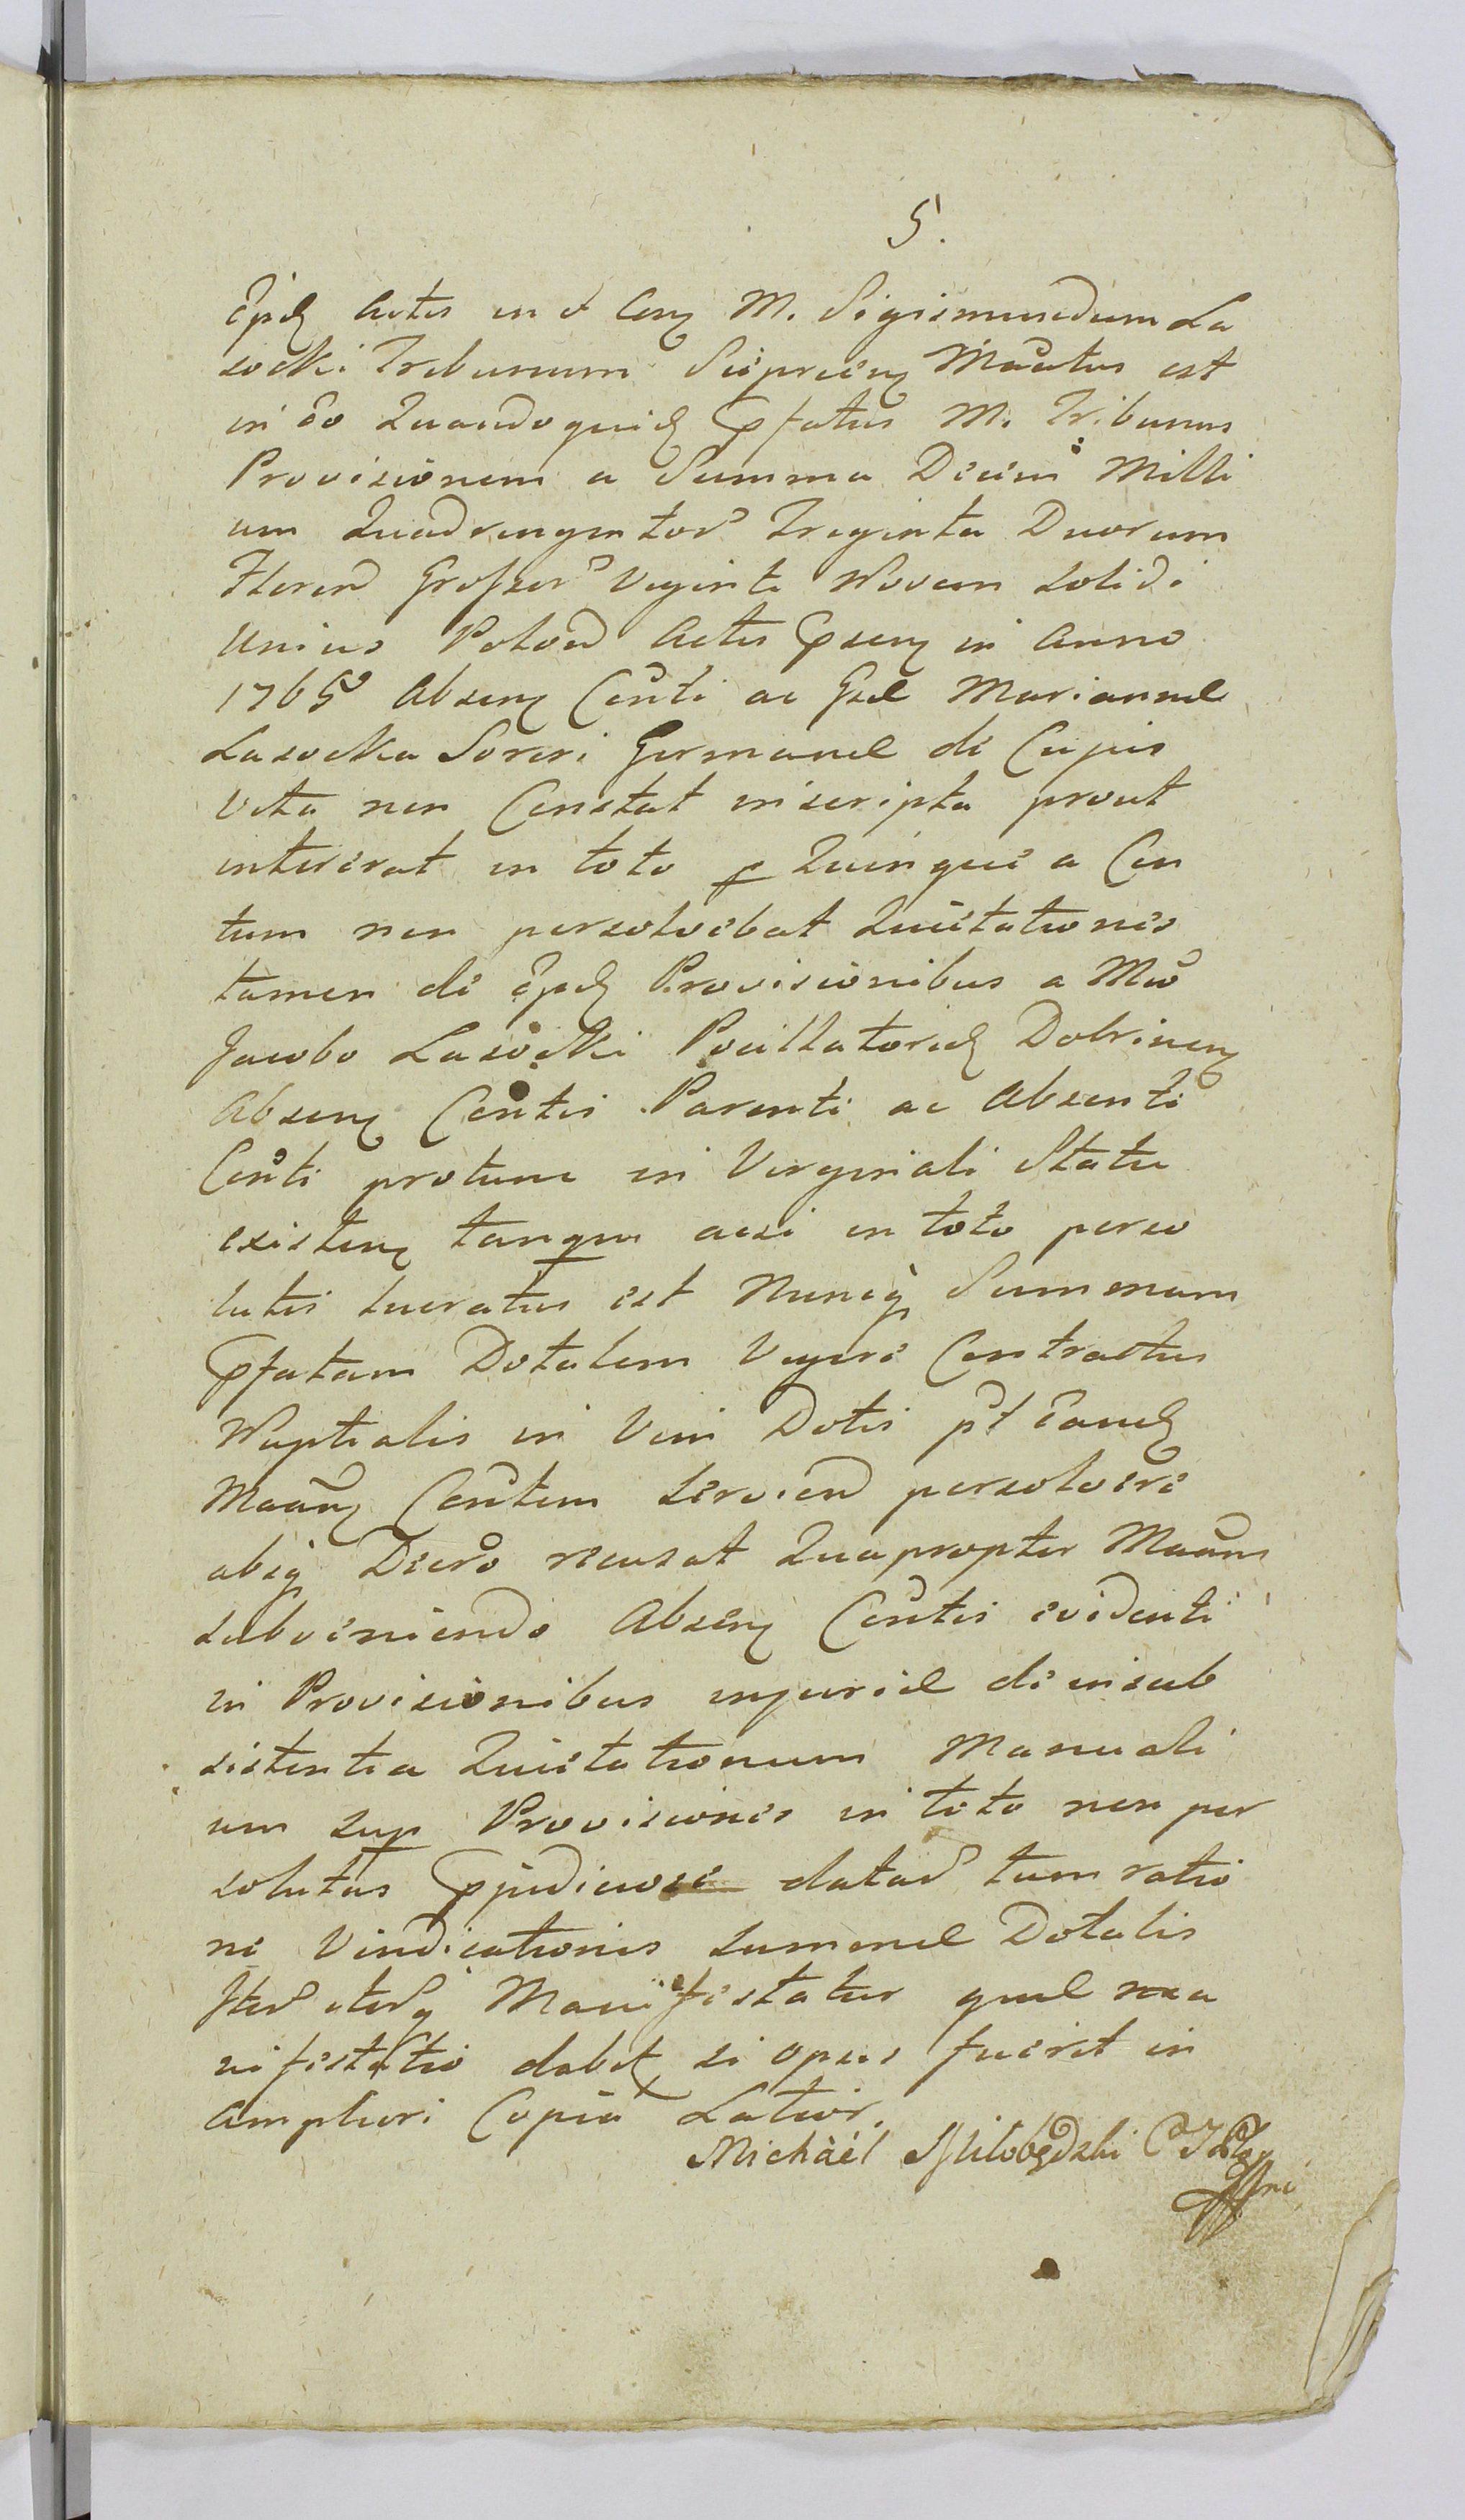 5.
actis in et M. Sigismundum La
socki Tribunum Sieprcen Mãtus est
in eo Quandoquid Pfatus M. Tribunus
Provisionem a Summa Decem Milli
um Quadringentor Triginta Duorum
Floren Groszor Viginti Novem Solidi
Unius Polon Actis Psen in Anno
1765º Absen Conti ac Gsae Mariannae
Lasocka Sorori Germanae de Cujus
Vita non Constat inscripta prout
intererat in toto p Quinque a Cen
tum non persolvebat Quietationes
tamen de Provisionibus a Mco
Jacobo Lasocki Pocillatorid Dobrinen
Absen Contis Parenti ac Absenti
Conti protunc in Virginali Statu
existen tanqm acsi in toto perso
lutis lucratus est Nuncq Summam
Pfatam Dotalem Vigore Contractus
Nuptialis in Vim Dotis pt eand
Maãn Contem servien persolvere
absq Decro recusat Quapropter Maãns
subveniendo Absen Contis evidenti
in Provisionibus injuriae de insub
sistentia Quietationum Manuali
um sup Provisiones in toto non per
solutas Pjudiciose datar tum ratio
ne Vindicationis Summae Dotalis
Iter iterq Manifestatur quae ma
nifestatio dabit si opus fuerit in
ampliori Copia Latior.
Michaél